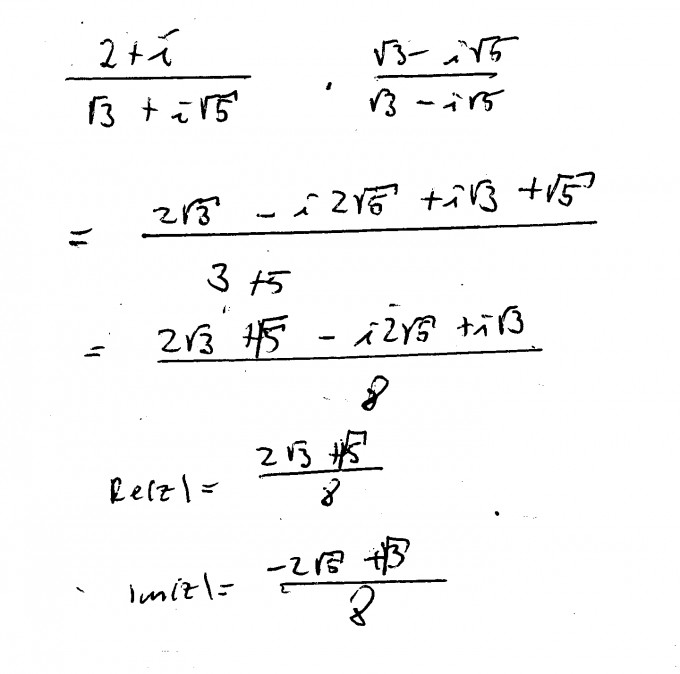 (2+i)/(√3 + i√5) · (√3 - i√5)/(√3 - i√5)
= (2√3 - i2√5 + i√3 + √5)/(3 + 5)
= (2√3 + √5 - i2√5 + i√3)/8
Re(z) = (2√3 + √5)/8
Im(z) = (-2√5 + √3)/8